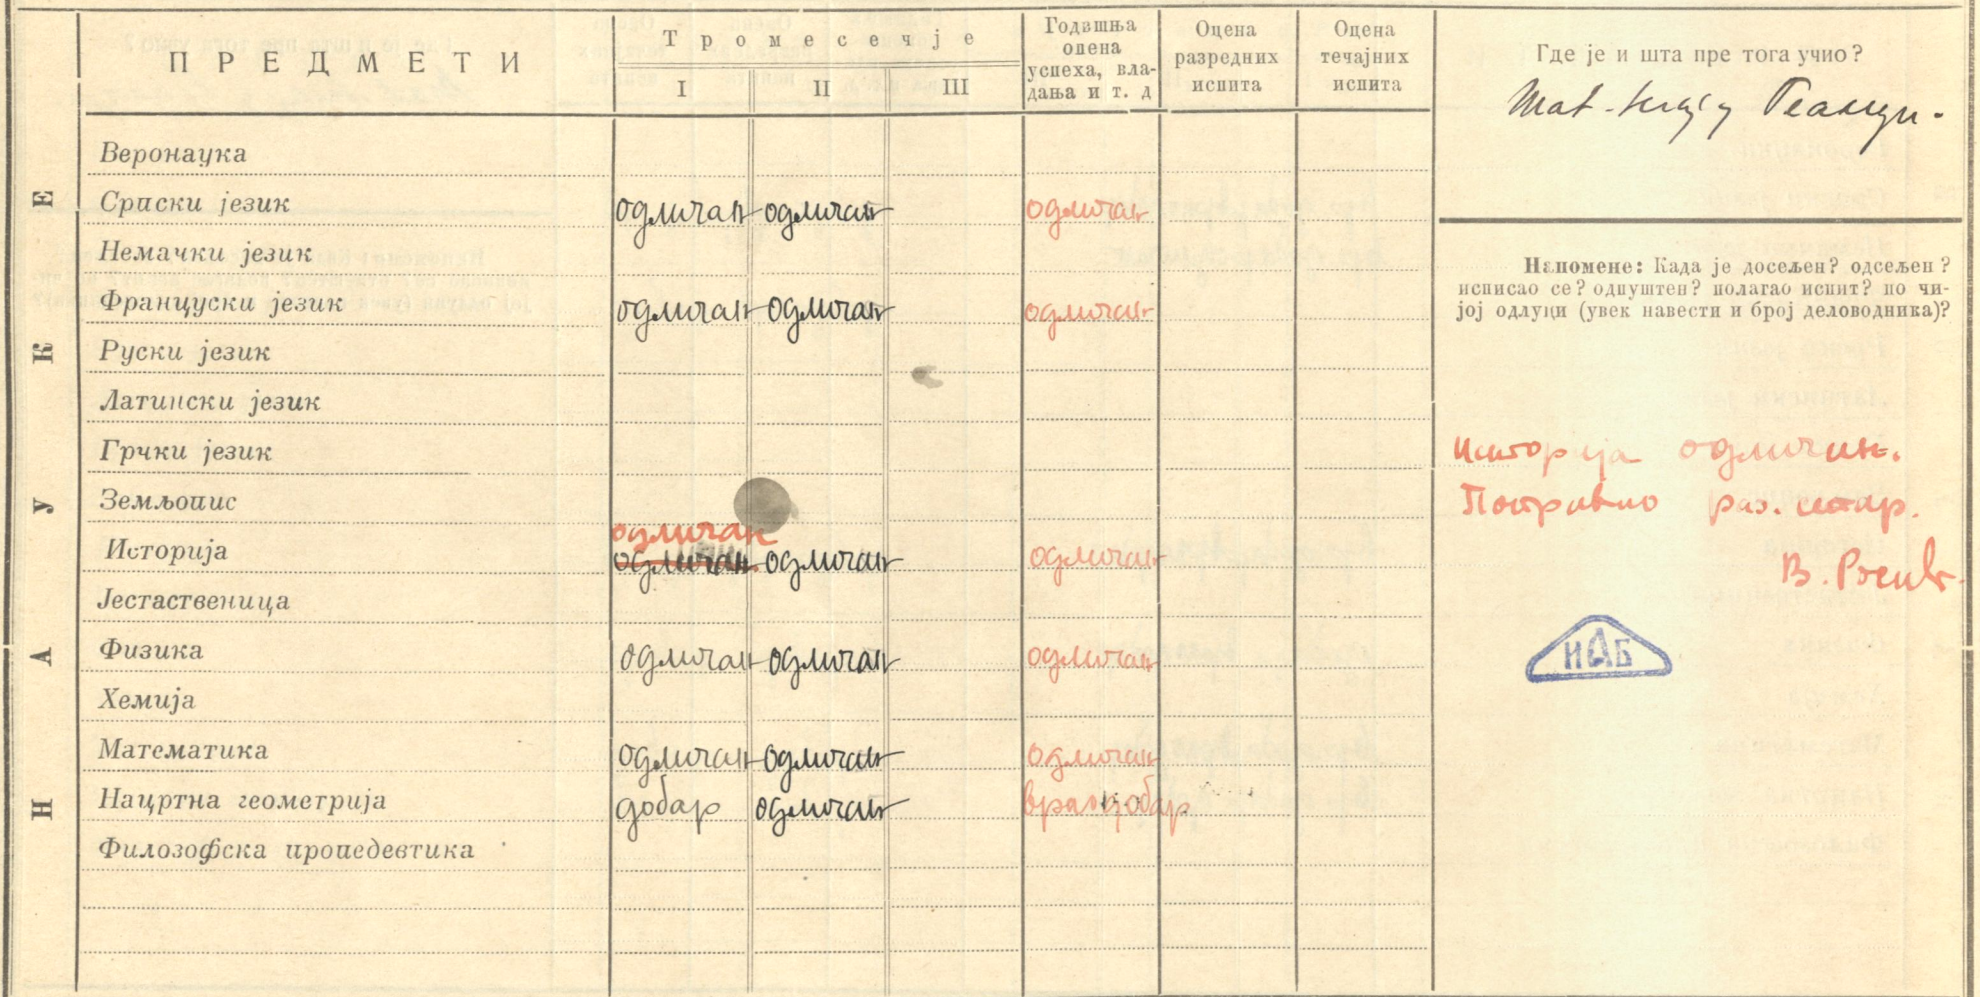 ПРЕДМЕТИ
Тромесечје
I II III
Годишња
оцена
успеха, вла-
дања и т. д
Оцена
разредних
испита
Оцена
течајних
испита
Где је и шта пре тога учио?
НАУКЕ
Веронаука
Српски језик одличан одличан одличан
Немачки језик
Француски језик одличан одличан одличан
Руски језик
Латински језик
Грчки језик
Земљопис
одличан
Историја одличан одличан одличан
Јестаственица
Физика одличан одличан одличан
Хемија
Математика одличан одличан одличан
Нацртна геометрија добар одличан врло добар
Филозофска пропедевтика
Напомене: Када је досељен? одсељен?
исписао се? одпуштен? полагао испит? по чи-
јој одлуци (увек навести и број деловодника)?
историја одличан.
Поправио раз. стар.
В.
ИАБ